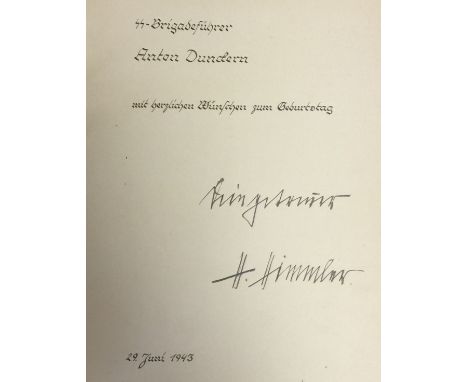 ᛋᛋ-Brigadeführer
Anton Dunckern
mit herzlichen Wünschen zum Geburtstag
Dein getreuer
H. Himmler
29. Juni 1943